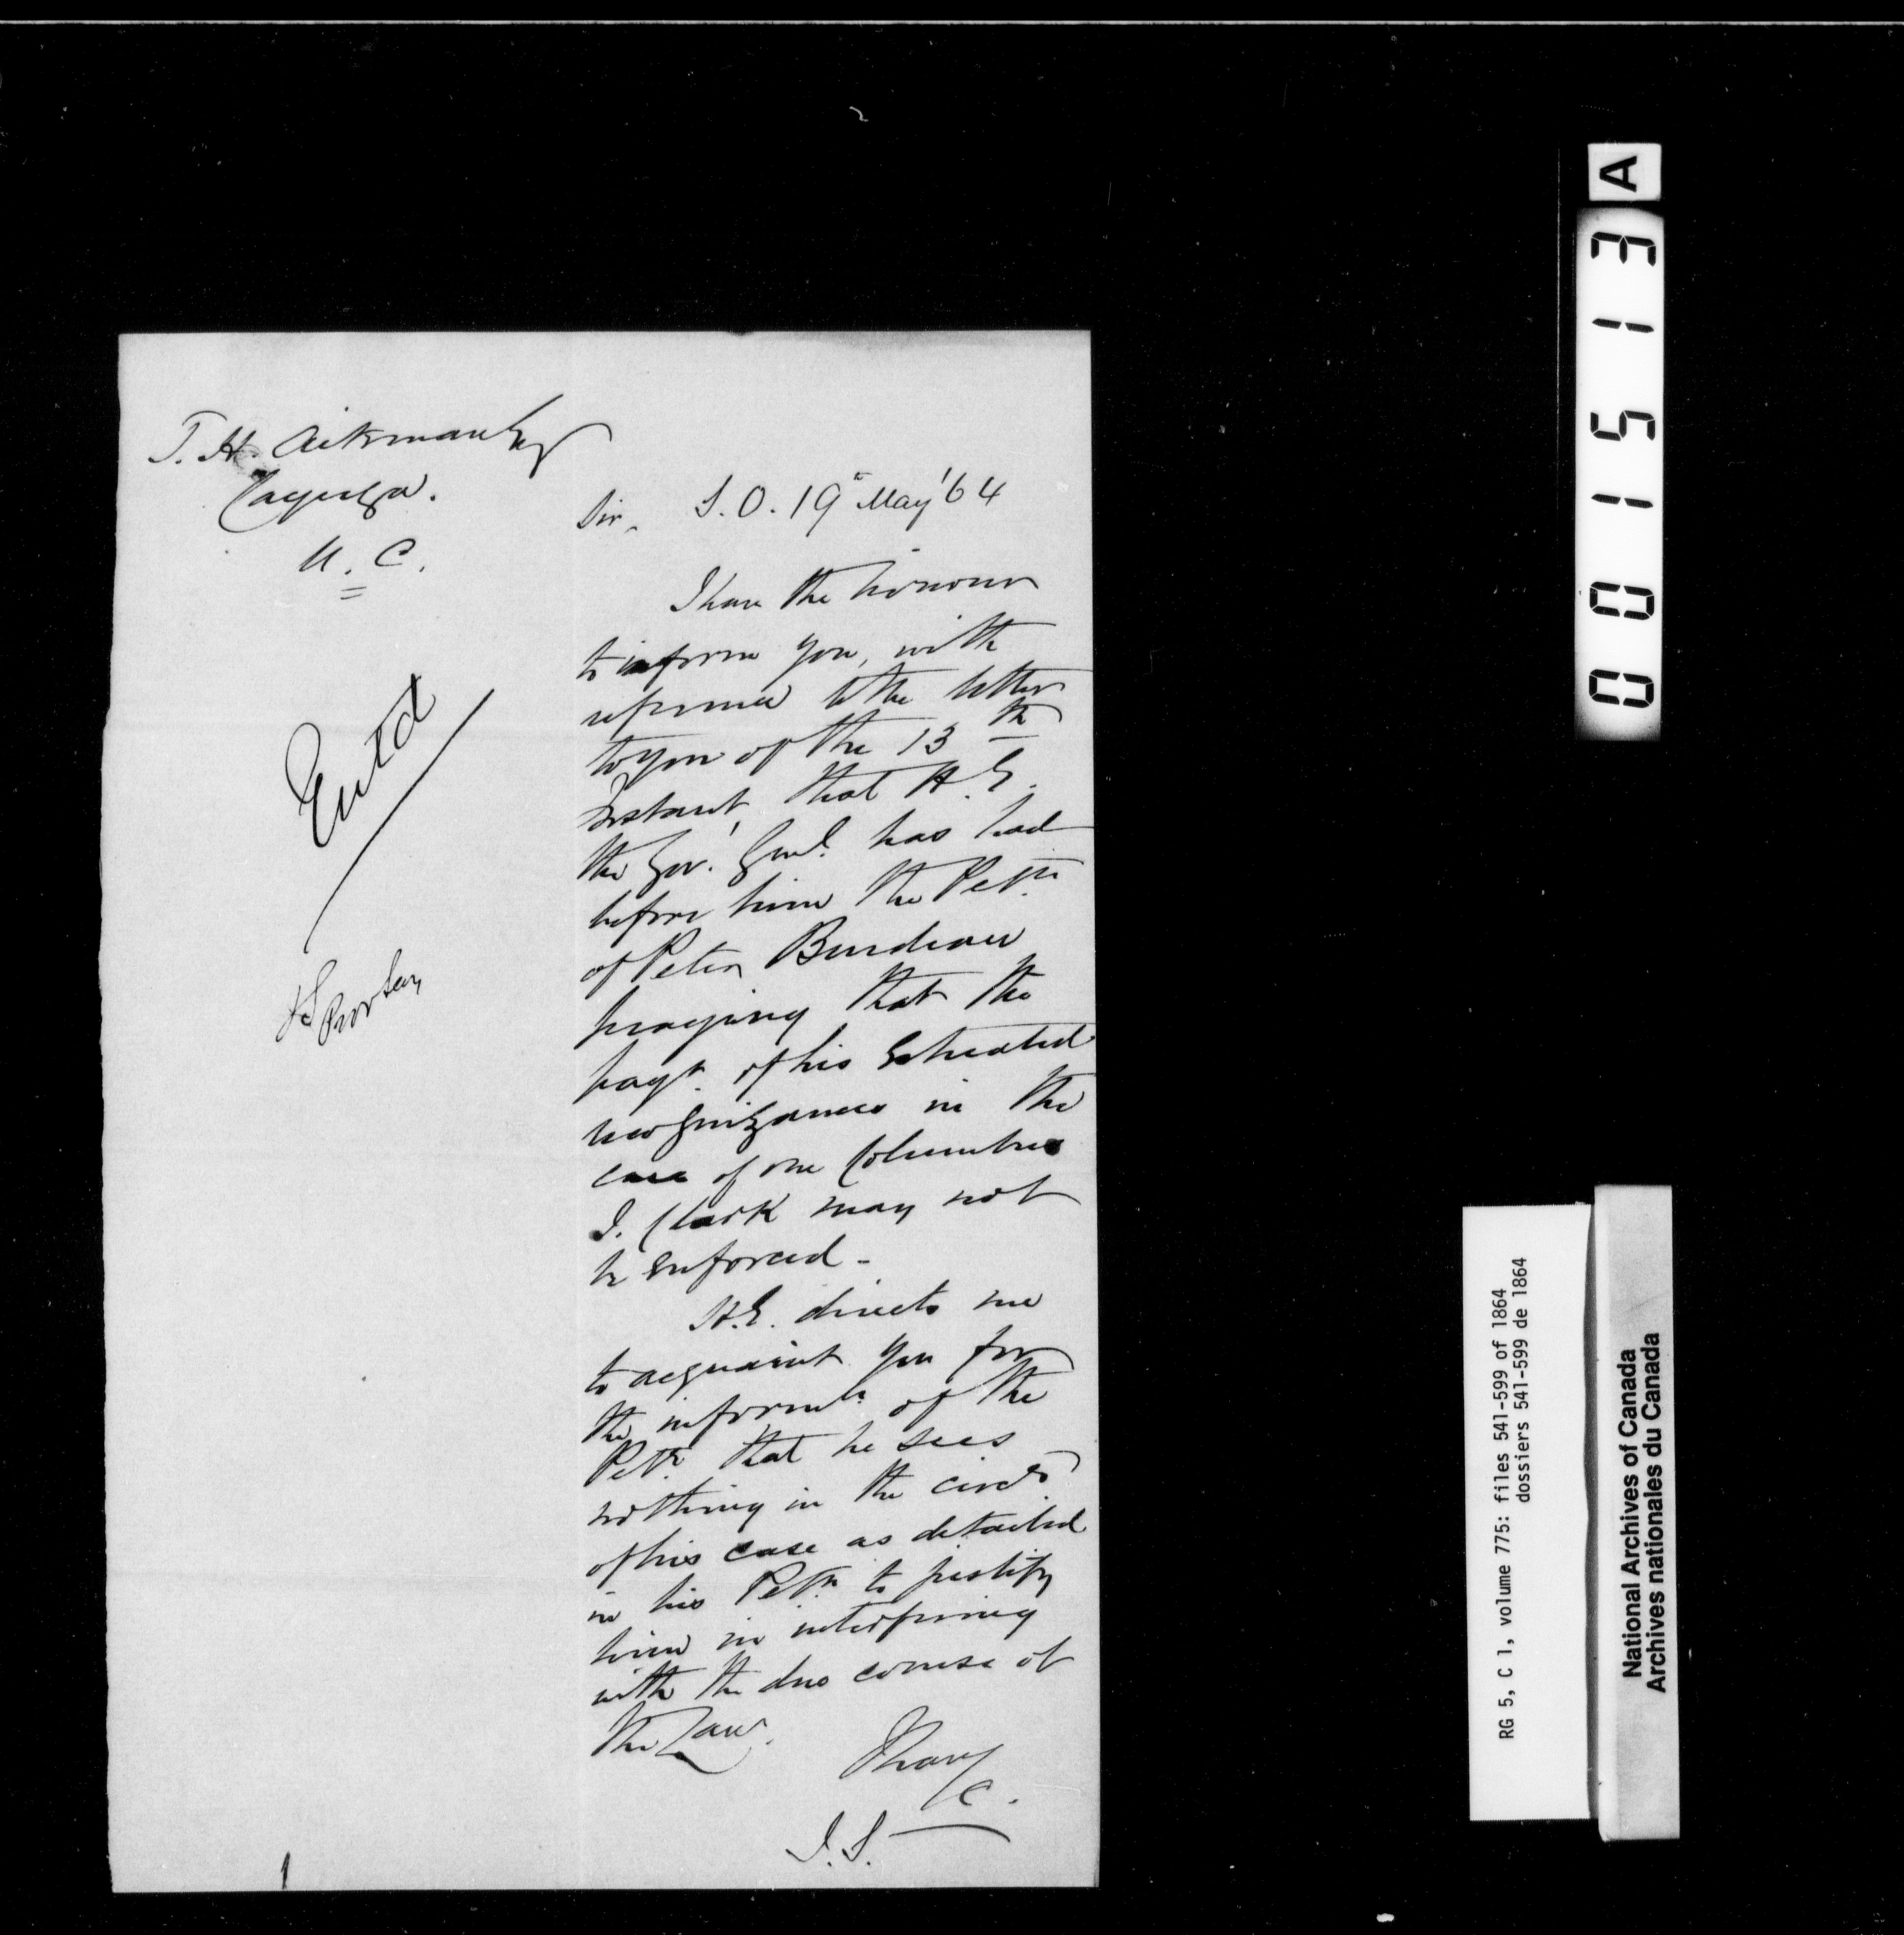 T. H. Aikman Esq
Cayuga.
U. C.
Entd
Sir, S.O. 19th May '64
I have the honour
to inform you, with
reference to the letter
to you of the 13th
Instant, that H.E.
the Gov. Genl. has had
before him the Petn.
of Peter Burdeau
praying that the
payt. of his Estreated
recognizances in the
case of one Columbus
I. Clark may not
be enforced -
H.E. directs me
to acquaint you for
the informn. of the
Petr. that he sees
nothing in the circes.
of his case as detailed
in his Petn. to justify
him in interfering
with the due course of
the Law.
I have
&c.
A
001513
RG 5, C 1, volume 775: files 541-599 of 1864
dossiers 541-599 de 1864
National Archives of Canada
Archives nationales du Canada